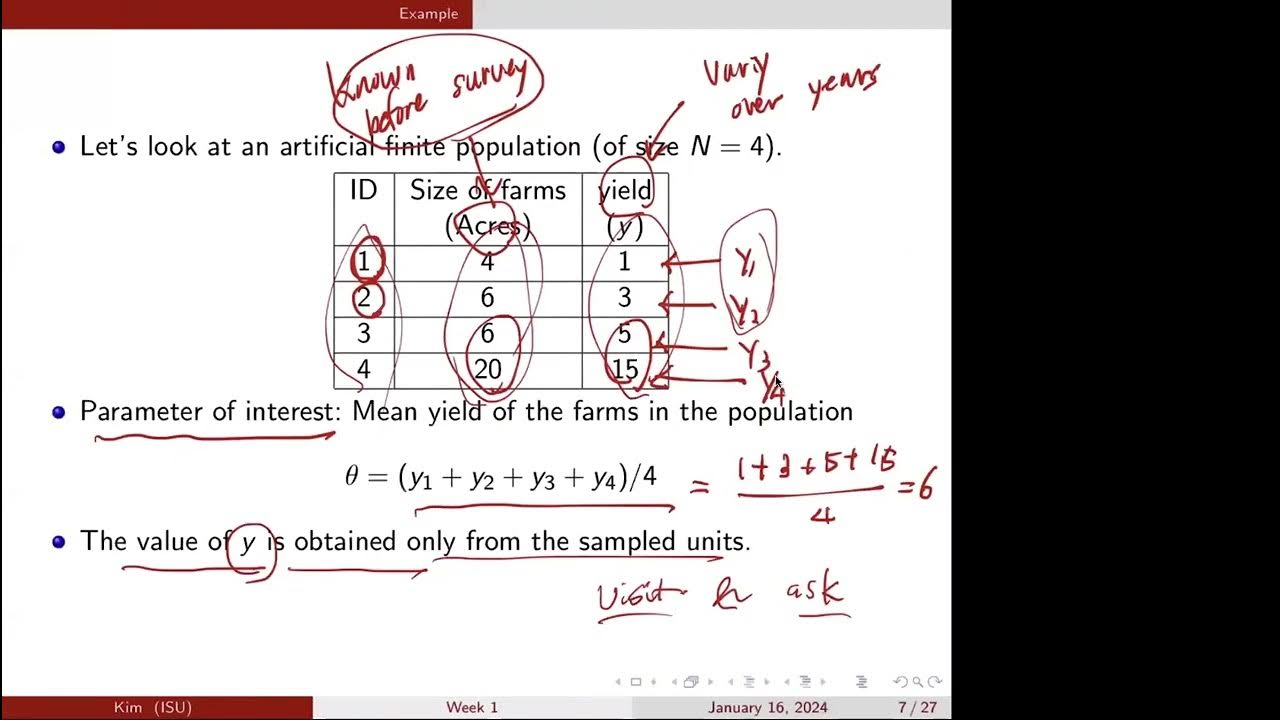 Example
known before survey
Variy over years
Let's look at an artificial finite population (of size N = 4).
ID Size of farms yield
(Acres) (y)
1 4 1 y1
2 6 3 y2
3 6 5 y3
4 20 15 y4
Parameter of interest: Mean yield of the farms in the population
θ = (y1 + y2 + y3 + y4)/4 = 1+3+5+15 / 4 = 6
The value of y is obtained only from the sampled units.
visit & ask
Kim (ISU) Week 1 January 16, 2024 7 / 27